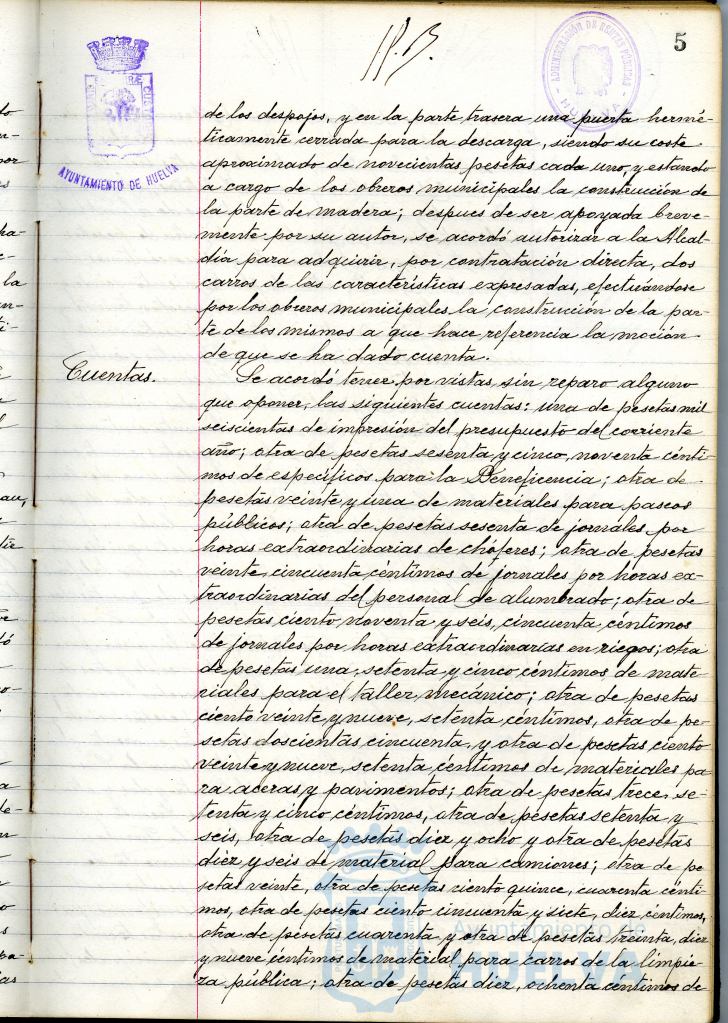 5
AYUNTAMIENTO DE HUELVA
ADMINISTRACIÓN DE RENTAS PÚBLICAS
HUELVA
de los despojos, y en la parte trasera una puerta hermé-
ticamente cerrada para la descarga, siendo su coste
aproximado de novecientas pesetas cada uno, y estando
a cargo de los obreros municipales la construcción de
la parte de madera; despues de ser apoyada breve-
mente por su autor, se acordó autorizar a la Alcal-
día para adquirir, por contratación directa, dos
carros de las características expresadas, efectuándose
por los obreros municipales la construcción de la par-
te de los mismos a que hace referencia la moción
de que se ha dado cuenta.
Cuentas.
Se acordó tener por vistas, sin reparo alguno
que oponer, las siguientes cuentas: una de pesetas mil
seiscientas de impresión del presupuesto del corriente
año; otra de pesetas sesenta y cinco, noventa cénti-
mos de específicos para la Beneficencia; otra de
pesetas veinte y una de materiales para paseos
públicos; otra de pesetas sesenta de jornales por
horas extraordinarias de chóferes; otra de pesetas
veinte, cincuenta céntimos de jornales por horas ex-
traordinarias del personal de alumbrado; otra de
pesetas, ciento noventa y seis, cincuenta céntimos
de jornales por horas extraordinarias en riegos; otra
de pesetas una, setenta y cinco céntimos de mate-
riales para el taller mecánico; otra de pesetas
ciento veinte y nueve, setenta céntimos, otra de pe-
setas doscientas cincuenta, y otra de pesetas ciento
veinte y nueve, setenta céntimos de materiales pa-
ra aceras y pavimentos; otra de pesetas trece, se-
tenta y cinco céntimos, otra de pesetas setenta y
seis, otra de pesetas diez y ocho y otra de pesetas
diez y seis de material para camiones; otra de pe
setas veinte, otra de pesetas ciento quince, cuarenta cénti-
mos, otra de pesetas ciento cincuenta y siete, diez céntimos,
otra de pesetas cuarenta y otra de pesetas treinta, diez
y nueve céntimos de material para carros de la limpie-
za pública; otra de pesetas diez, ochenta céntimos de
Ayuntamiento de
HUELVA